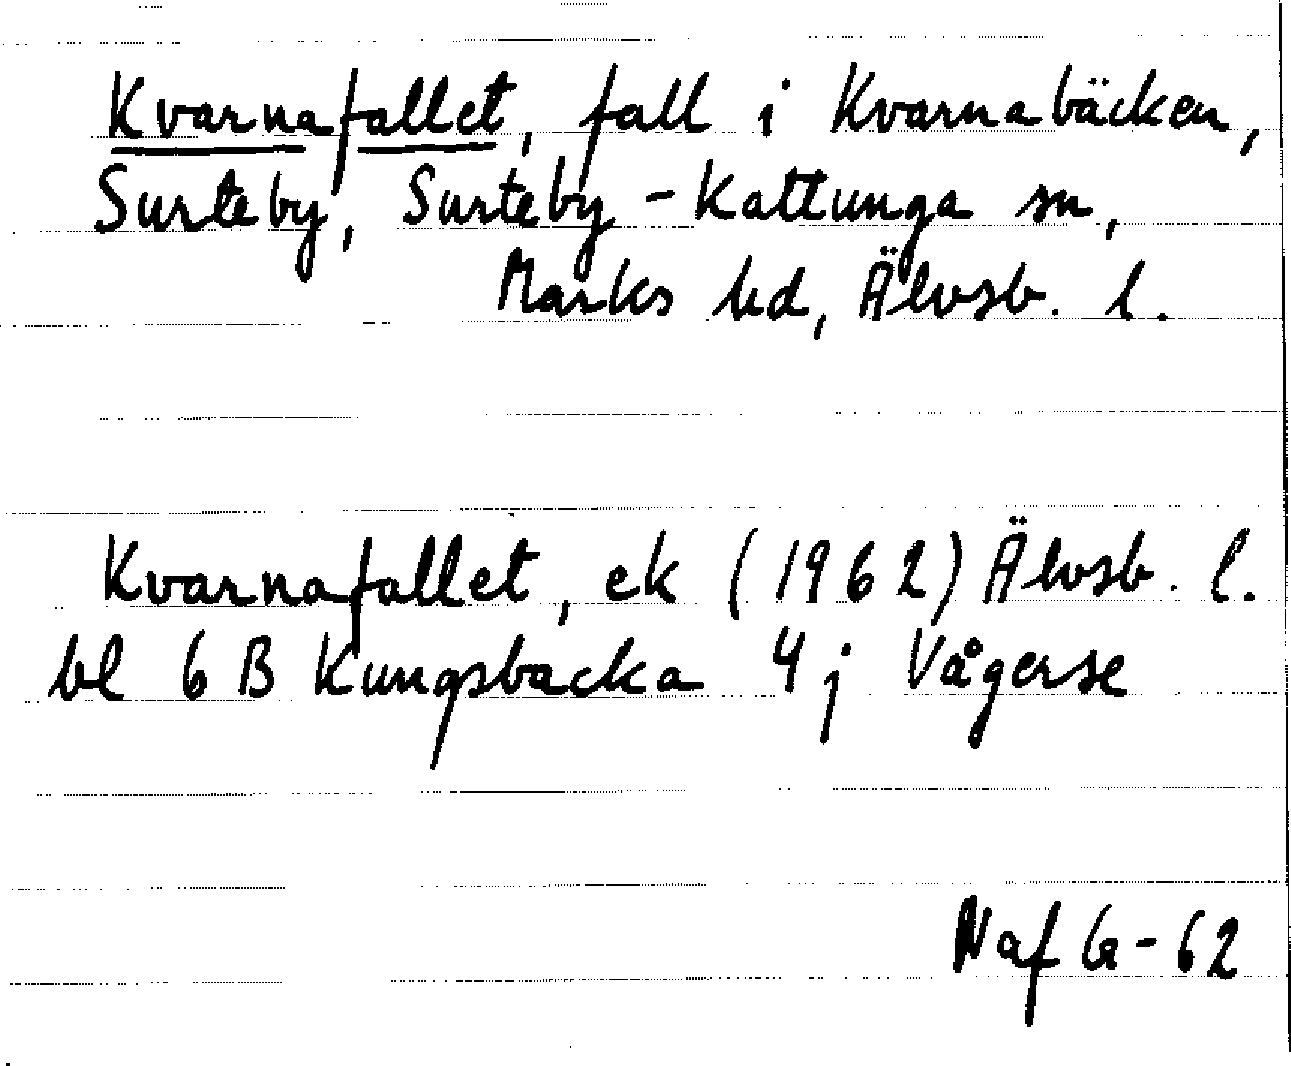 Kvarnafallet, fall i Kvarnabäcken,
Surteby, Surteby-Kattunga sn,
Marks hd, Älvsb. l.
Kvarnafallet, ek (1962) Älvsb. l.
bl 6 B Kungsbacka 4 j Vågerse
Naf G-62